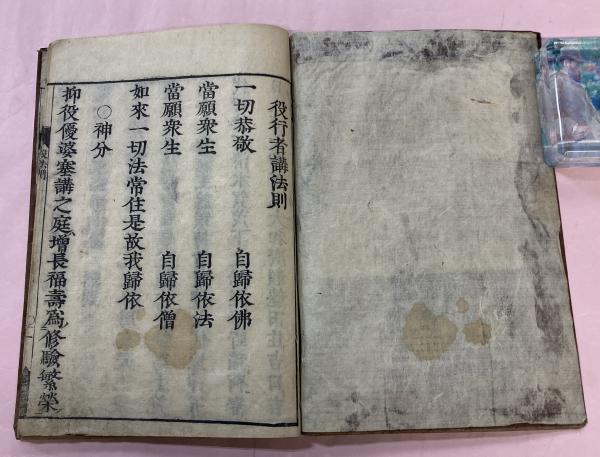 役行者講法則
一切恭敬　自歸依佛
當願衆生　自歸依法
當願衆生　自歸依僧
如來一切法常住是故我歸依
〇神分
抑役優婆塞講之庭増長福壽爲修驗繁榮